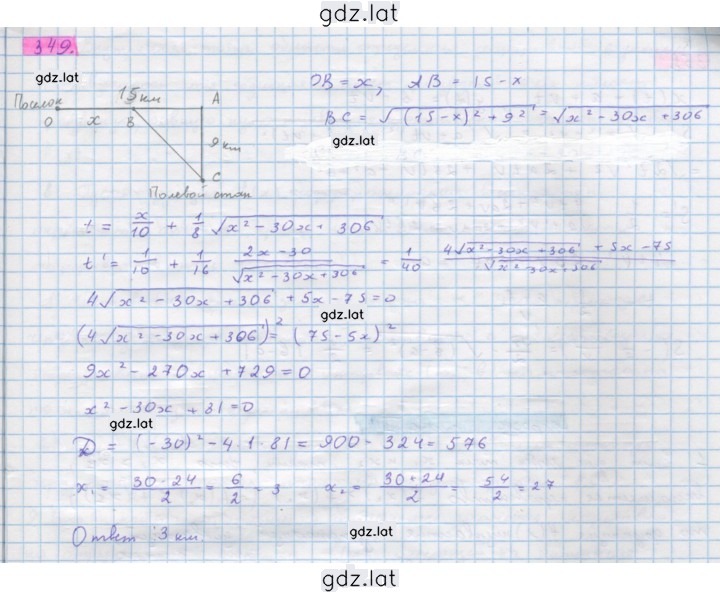 gdz.lat
349.
gdz.lat
15 км
Поселок
A
O x B
9 км
C
Полевой стан
OB = x, AB = 15 - x
BC = √((15 - x)² + 9²) = √(x² - 30x + 306)
gdz.lat
t = x/10 + 1/8 √(x² - 30x + 306)
t' = 1/10 + 1/16 (2x - 30)/√(x² - 30x + 306) = 1/40 (4√(x² - 30x + 306) + 5x - 75)/√(x² - 30x + 306)
4√(x² - 30x + 306) + 5x - 75 = 0
gdz.lat
(4√(x² - 30x + 306))² = (75 - 5x)²
9x² - 270x + 729 = 0
x² - 30x + 81 = 0
gdz.lat
D = (-30)² - 4·1·81 = 900 - 324 = 576
x₁ = (30 - 24)/2 = 6/2 = 3 x₂ = (30 + 24)/2 = 54/2 = 27
Ответ: 3 км.
gdz.lat
gdz.lat